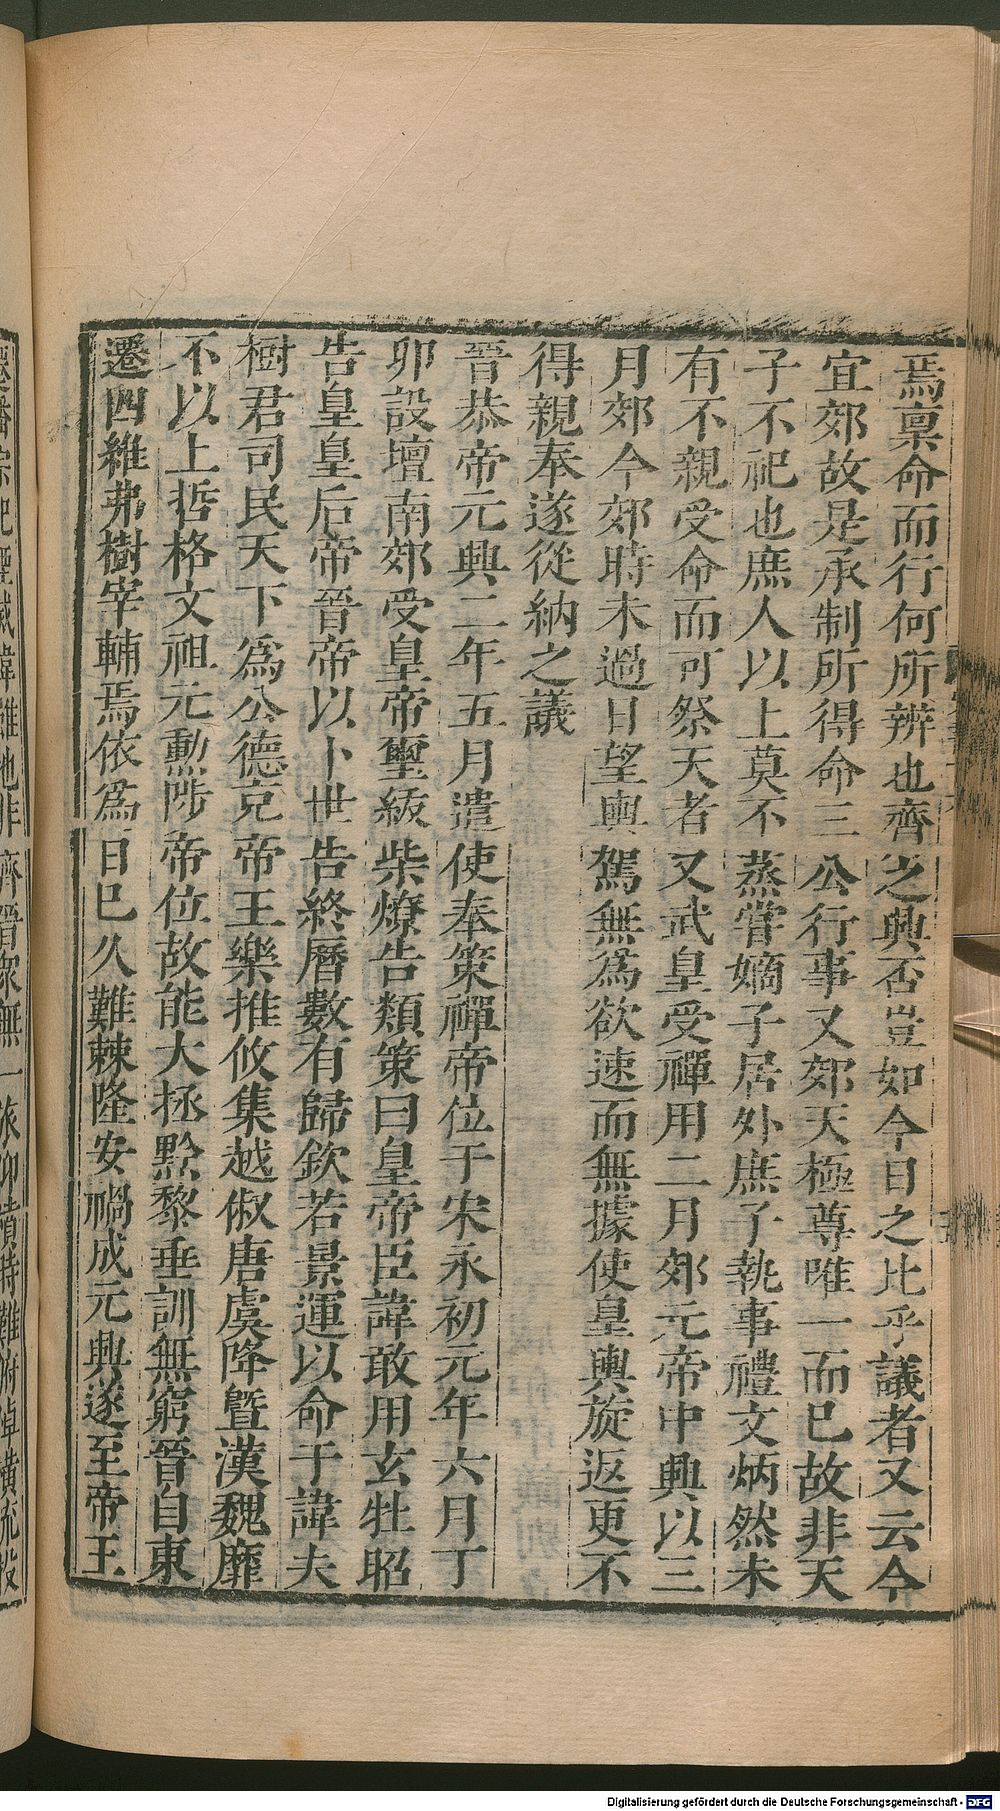 焉稟命而行何所辨也齊之興否豈如今日之比乎議者又云今
宜郊故是承制所得命三公行事又郊天極尊唯一而已故非天
子不祀也庶人以上莫不蒸嘗嫡子居外庶子執事禮文炳然未
有不親受命而可祭天者又武皇受禪用二月郊元帝中興以三
月郊今郊時未過日望輿駕無為欲速而無據使皇輿旋返更不
得親奉遂從納之議
晉恭帝元興二年五月遣使奉策禪帝位于宋永初元年六月丁
卯設壇南郊受皇帝璽紱柴燎告類策曰皇帝臣諱敢用玄牡昭
告皇皇后帝晉帝以卜世告終曆數有歸欽若景運以命于諱夫
樹君司民天下為公德克帝王樂推攸集越俶唐虞降曁漢魏靡
不以上哲格文祖元勳陟帝位故能大拯黔黎垂訓無窮晉自東
遷四維弗樹宰輔焉依為日已久難棘隆安禍成元興遂至帝王
Digitalisierung gefördert durch die Deutsche Forschungsgemeinschaft - DFG